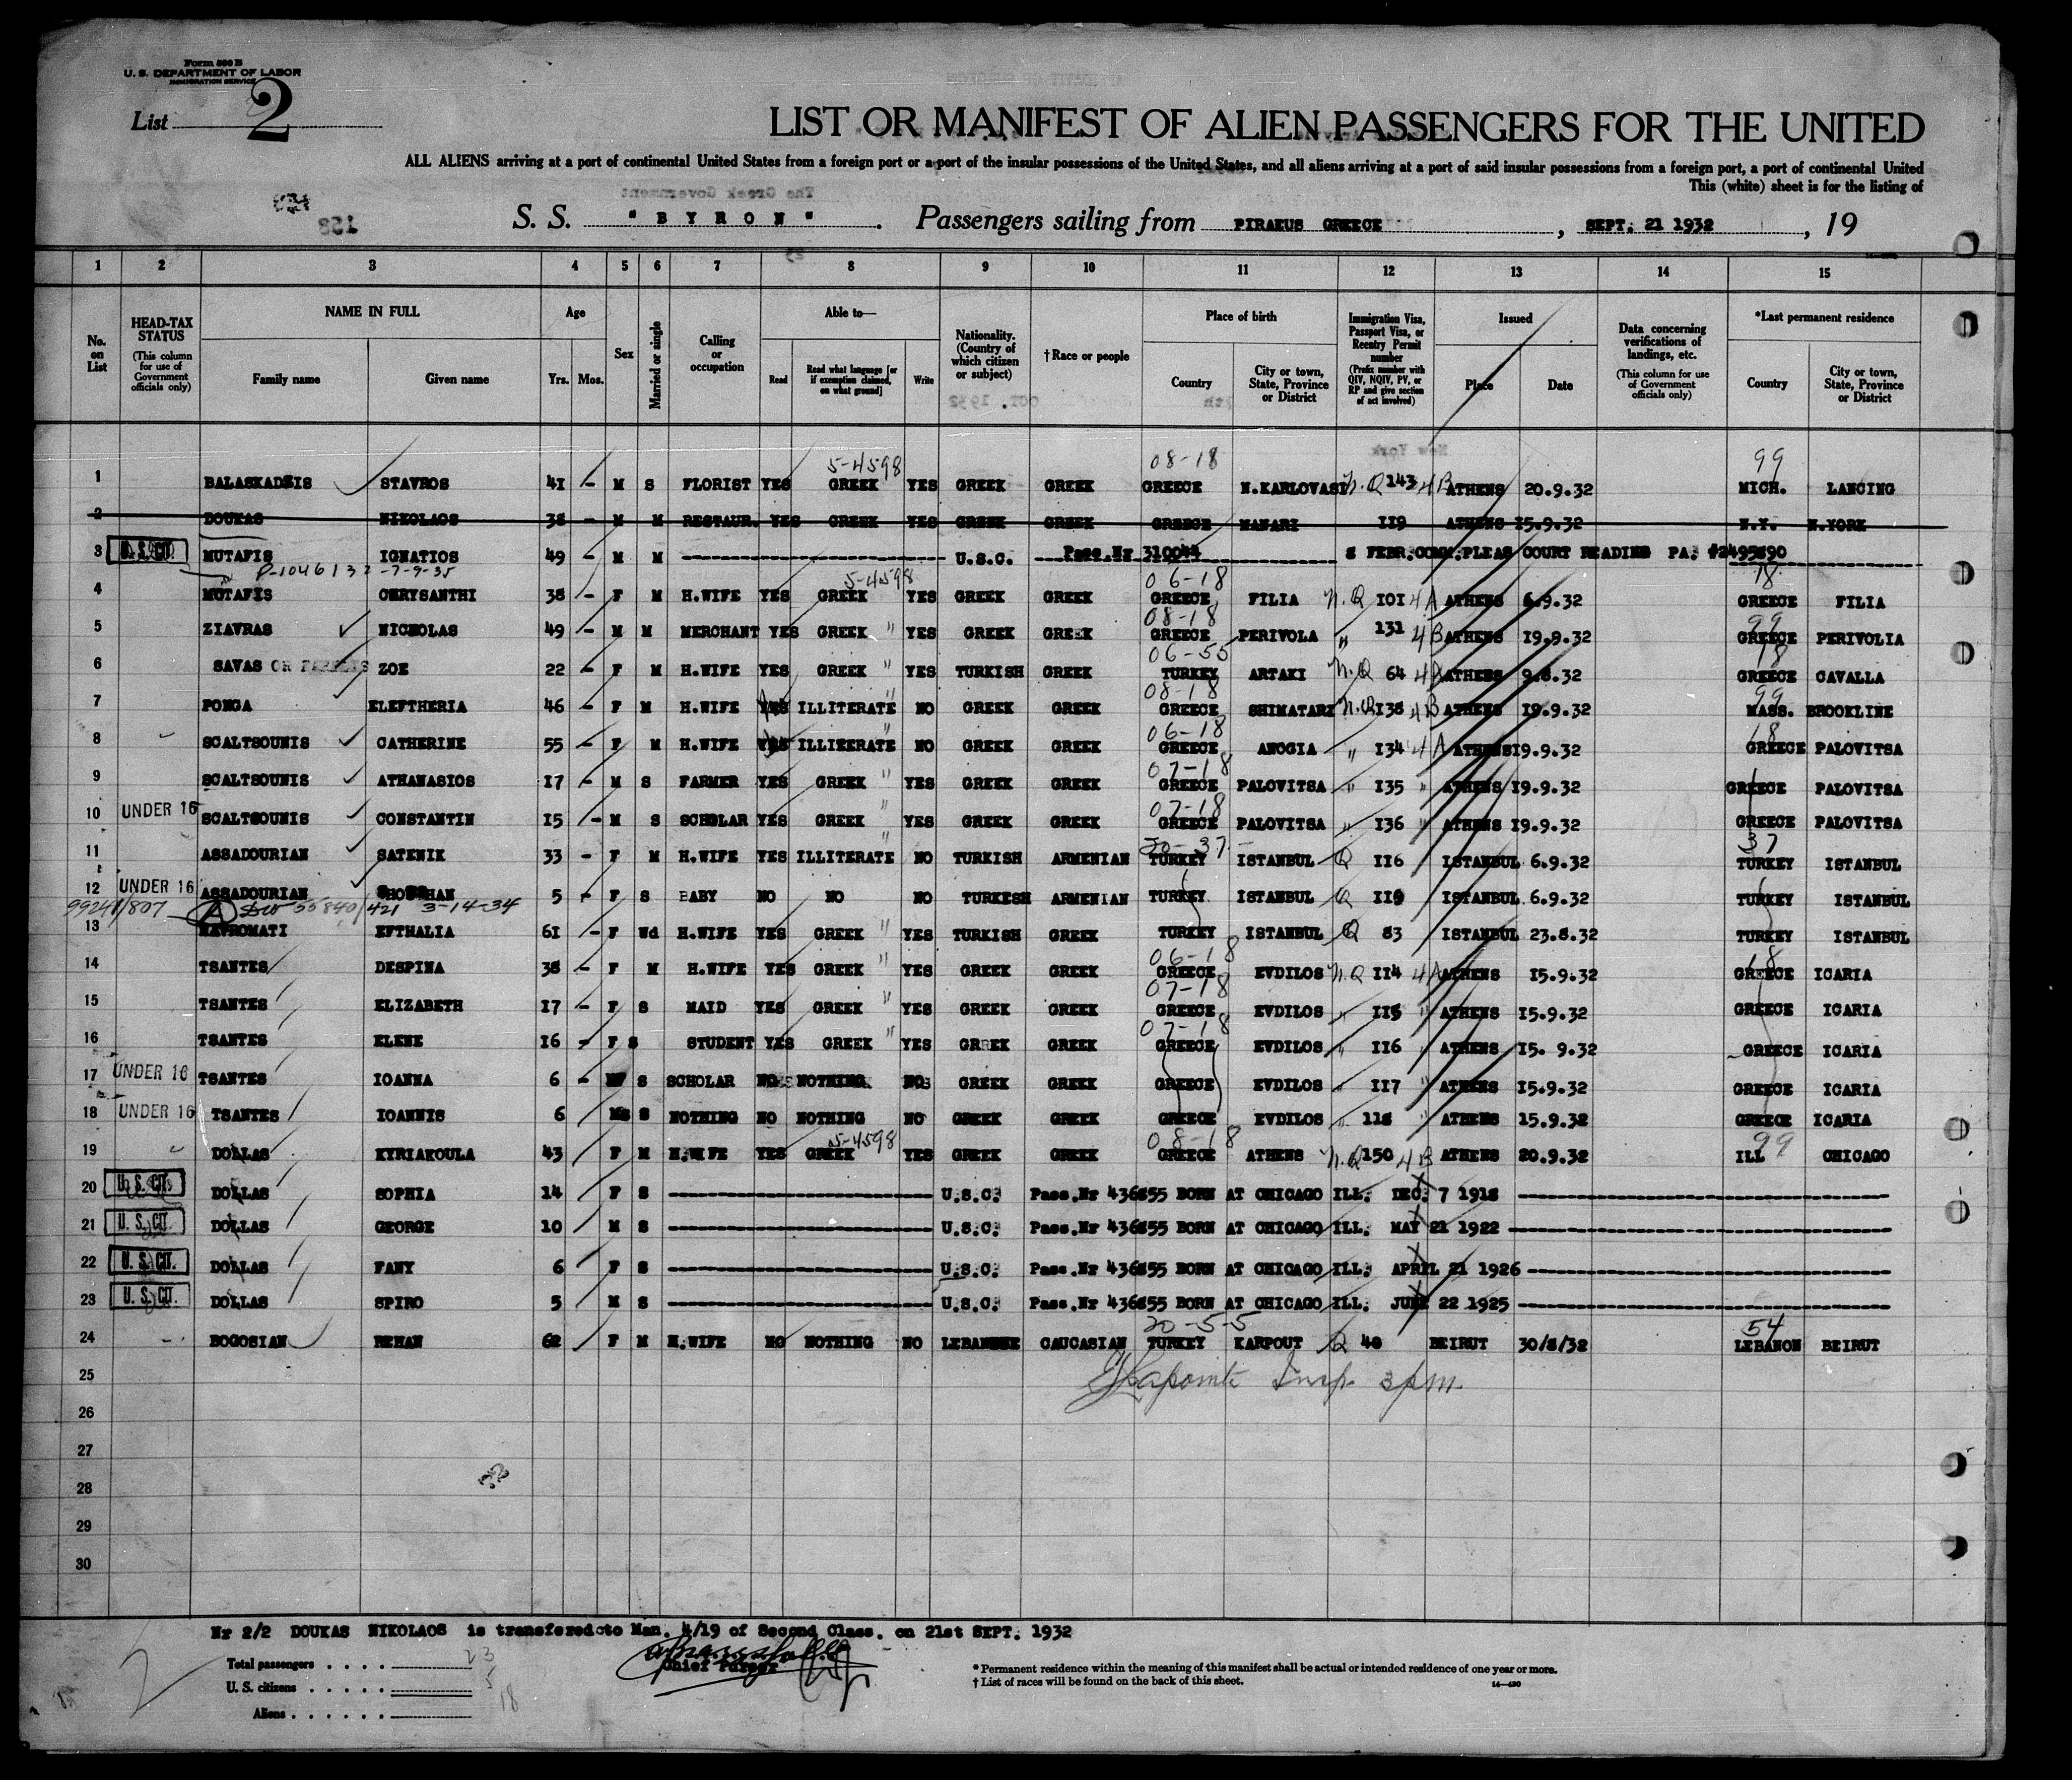 Form 500 B
U. S. DEPARTMENT OF LABOR
IMMIGRATION SERVICE
List 2
LIST OR MANIFEST OF ALIEN PASSENGERS FOR THE UNITED
ALL ALIENS arriving at a port of continental United States from a foreign port or a port of the insular possessions of the United States, and all aliens arriving at a port of said insular possessions from a foreign port, a port of continental United
This (white) sheet is for the listing of
The Greek Government
158
S. S. "BYRON". Passengers sailing from PIRAEUS GREECE, SEPT. 21 1932, 19
1 2 3 4 5 6 7 8 9 10 11 12 13 14 15
No. on List
HEAD-TAX STATUS (This column for use of Government officials only)
NAME IN FULL
Family name Given name
Age
Yrs. Mos.
Sex
Married or single
Calling or occupation
Able to—
Read Read what language [or if exemption claimed, on what ground] Write
Nationality. (Country of which citizen or subject)
† Race or people
Place of birth
Country City or town, State, Province or District
Immigration Visa, Passport Visa, or Reentry Permit number (Prefix number with QIV, NQIV, PV, or RP and give section of act involved)
Issued
Place Date
Data concerning verifications of landings, etc. (This column for use of Government officials only)
*Last permanent residence
Country City or town, State, Province or District
OCT. 1932
New York
5-4598 08-18 99
1 BALASKADSIS STAVROS 41 - M S FLORIST YES GREEK YES GREEK GREEK GREECE N.KARLOVASI N.Q 143 4B ATHENS 20.9.32 MICH. LANCING
2 DOUKAS NIKOLAOS 38 - M M RESTAUR. YES GREEK YES GREEK GREEK GREECE MANARI 119 ATHENS 15.9.32 N.Y. N.YORK
3 U.S.CIT. MUTAFIS IGNATIOS 49 - M M U.S.C. Pass.Nr 310044 8 FEBR.COMM.PLEAS COURT READING PA. #2495890
P-1046132 -7-9-35 5-4598 06-18 18
4 MUTAFIS CHRYSANTHI 38 - F M H.WIFE YES GREEK YES GREEK GREEK GREECE FILIA N.Q 101 4A ATHENS 6.9.32 GREECE FILIA
08-18 99
5 ZIAVRAS NICHOLAS 49 - M M MERCHANT YES GREEK " YES GREEK GREEK GREECE PERIVOLA " 131 4B ATHENS 19.9.32 GREECE PERIVOLIA
06-55 18
6 SAVAS OR ZOE 22 - F M H.WIFE YES GREEK " YES TURKISH GREEK TURKEY ARTAKI N.Q 64 4A ATHENS 9.8.32 GREECE CAVALLA
08-18 99
7 PONGA ELEFTHERIA 46 - F M H.WIFE YES ILLITERATE " NO GREEK GREEK GREECE SHIMATARI N.Q 138 4B ATHENS 19.9.32 MASS. BROOKLINE
06-18 18
8 SCALTSOUNIS CATHERINE 55 - F M H.WIFE YES ILLITERATE " NO GREEK GREEK GREECE ANOGIA " 134 4A ATHENS 19.9.32 GREECE PALOVITSA
07-18
9 SCALTSOUNIS ATHANASIOS 17 - M S FARMER YES GREEK " YES GREEK GREEK GREECE PALOVITSA " 135 " ATHENS 19.9.32 GREECE PALOVITSA
07-18
10 UNDER 16 SCALTSOUNIS CONSTANTIN 15 - M S SCHOLAR YES GREEK " YES GREEK GREEK GREECE PALOVITSA " 136 " ATHENS 19.9.32 GREECE PALOVITSA
20-37 37
11 ASSADOURIAN SATENIK 33 - F M H.WIFE YES ILLITERATE " NO TURKISH ARMENIAN TURKEY ISTANBUL Q 116 ISTANBUL 6.9.32 TURKEY ISTANBUL
12 UNDER 16 ASSADOURIAN 5 - F S BABY NO NO NO TURKESH ARMENIAN TURKEY ISTANBUL Q 119 ISTANBUL 6.9.32 TURKEY ISTANBUL
99241/807 A 55840/421 3-14-34
13 MAVROMATI EFTHALIA 61 - F Wd H.WIFE YES GREEK " YES TURKISH GREEK TURKEY ISTANBUL Q 83 ISTANBUL 23.8.32 TURKEY ISTANBUL
06-18 18
14 TSANTES DESPINA 38 - F M H.WIFE YES GREEK " YES GREEK GREEK GREECE EVDILOS N.Q 114 4A ATHENS 15.9.32 GREECE ICARIA
07-18
15 TSANTES ELIZABETH 17 - F S MAID YES GREEK " YES GREEK GREEK GREECE EVDILOS " 115 " ATHENS 15.9.32 GREECE ICARIA
07-18
16 TSANTES ELENE 16 - F S STUDENT YES GREEK " YES GREEK GREEK GREECE EVDILOS " 116 ATHENS 15. 9.32 GREECE ICARIA
17 UNDER 16 TSANTES IOANNA 6 - S SCHOLAR NO NOTHING NO GREEK GREEK GREECE EVDILOS " 117 " ATHENS 15.9.32 GREECE ICARIA
18 UNDER 16 TSANTES IOANNIS 6 S NOTHING NO NOTHING NO GREEK GREEK GREECE EVDILOS " 118 " ATHENS 15.9.32 GREECE ICARIA
5-4598 08-18 99
19 DOLLAS KYRIAKOULA 43 F M H.WIFE YES GREEK YES GREEK GREEK GREECE ATHENS N.Q 150 4B ATHENS 20.9.32 ILL CHICAGO
20 U.S.CIT. DOLLAS SOPHIA 14 F S U.S.C. Pass.Nr 436855 BORN AT CHICAGO ILL. DEC. 7 1918
21 U.S.CIT. DOLLAS GEORGE 10 M S U.S.C. Pass.Nr 436855 BORN AT CHICAGO ILL. MAY 21 1922
22 U.S.CIT. DOLLAS FANY 6 F S U.S.C. Pass.Nr 436855 BORN AT CHICAGO ILL. APRIL 21 1926
23 U.S.CIT. DOLLAS SPIRO 5 M S U.S.C. Pass.Nr 436855 BORN AT CHICAGO ILL. JUNE 22 1925
20-5-5 54
24 BOGOSIAN REHAN 62 F M H.WIFE NO NOTHING NO CAUCASIAN TURKEY KARPOUT Q 40 BEIRUT 30/8/32 LEBANON BEIRUT
25 Lapointe Insp. 3 pm.
26
27
28
29
30
Nr 2/2 DOUKAS NIKOLAOS is transferedoto Man. 4/19 of Second Class. on 21st SEPT. 1932
Chief Purser
Total passengers . . . . 23
U. S. citizens . . . . . 5
Aliens . . . . . . 18
* Permanent residence within the meaning of this manifest shall be actual or intended residence of one year or more.
† List of races will be found on the back of this sheet.
14—430